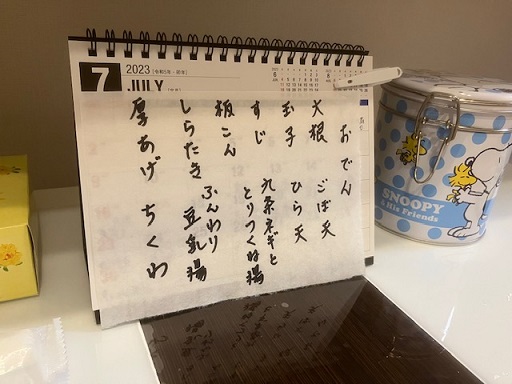 7
2023
JULY
おでん
大根 ごぼ天
玉子 ひら天
すじ 九条ネギと
とりつくね揚
板こん
しらたき ふんわり
豆乳揚
厚あげ ちくわ
SNOOPY
& His Friends